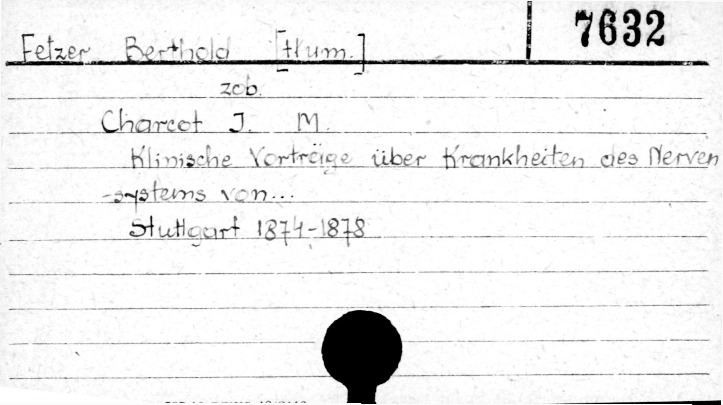 7632
Fetzer Berthold [tłum.]
zob.
Charcot J. M.
Klinische Vorträge über Krankheiten des Nerven
-systems von...
Stuttgart 1874-1878